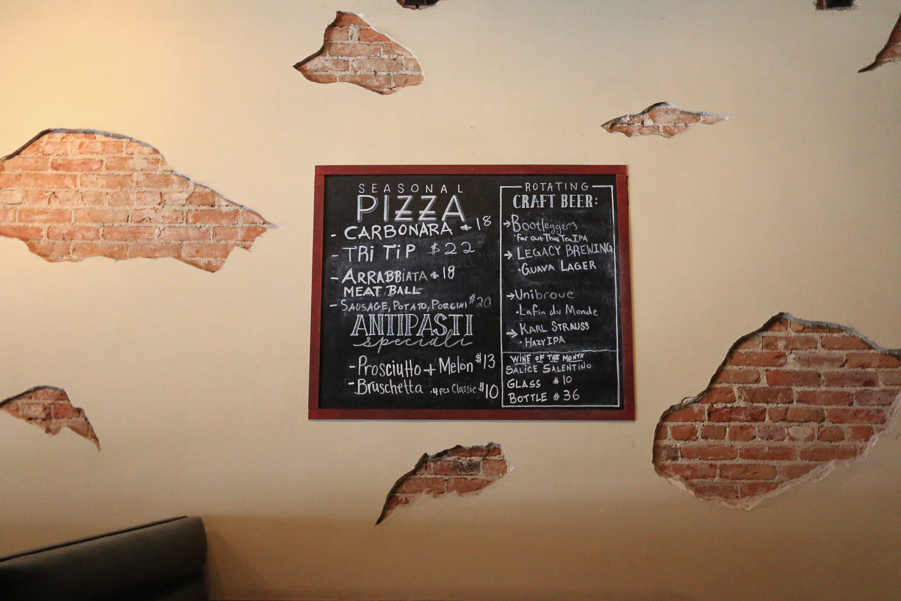 SEASONAL
PIZZA
- CARBONARA $18
- TRi TiP $22
- ARRABBIATA $18
MEAT BALL
- SAUSAGE, POTATO, PORCINI $20
ANTIPASTI
speciali
- Prosciutto + Melon $13
- Bruschetta .4pcs Classic $10
ROTATING
CRAFT BEER:
→ Bootleggers
• Far out The Tea IPA
→ LEGACY BREWING
• GUAVA LAGER
→ Unibroue
• La Fin du Monde
→ KARL STRAUSS
• HAZY IPA
WINE OF THE MONTH
SALICE SALENTINO
GLASS $10
BOTTLE $36